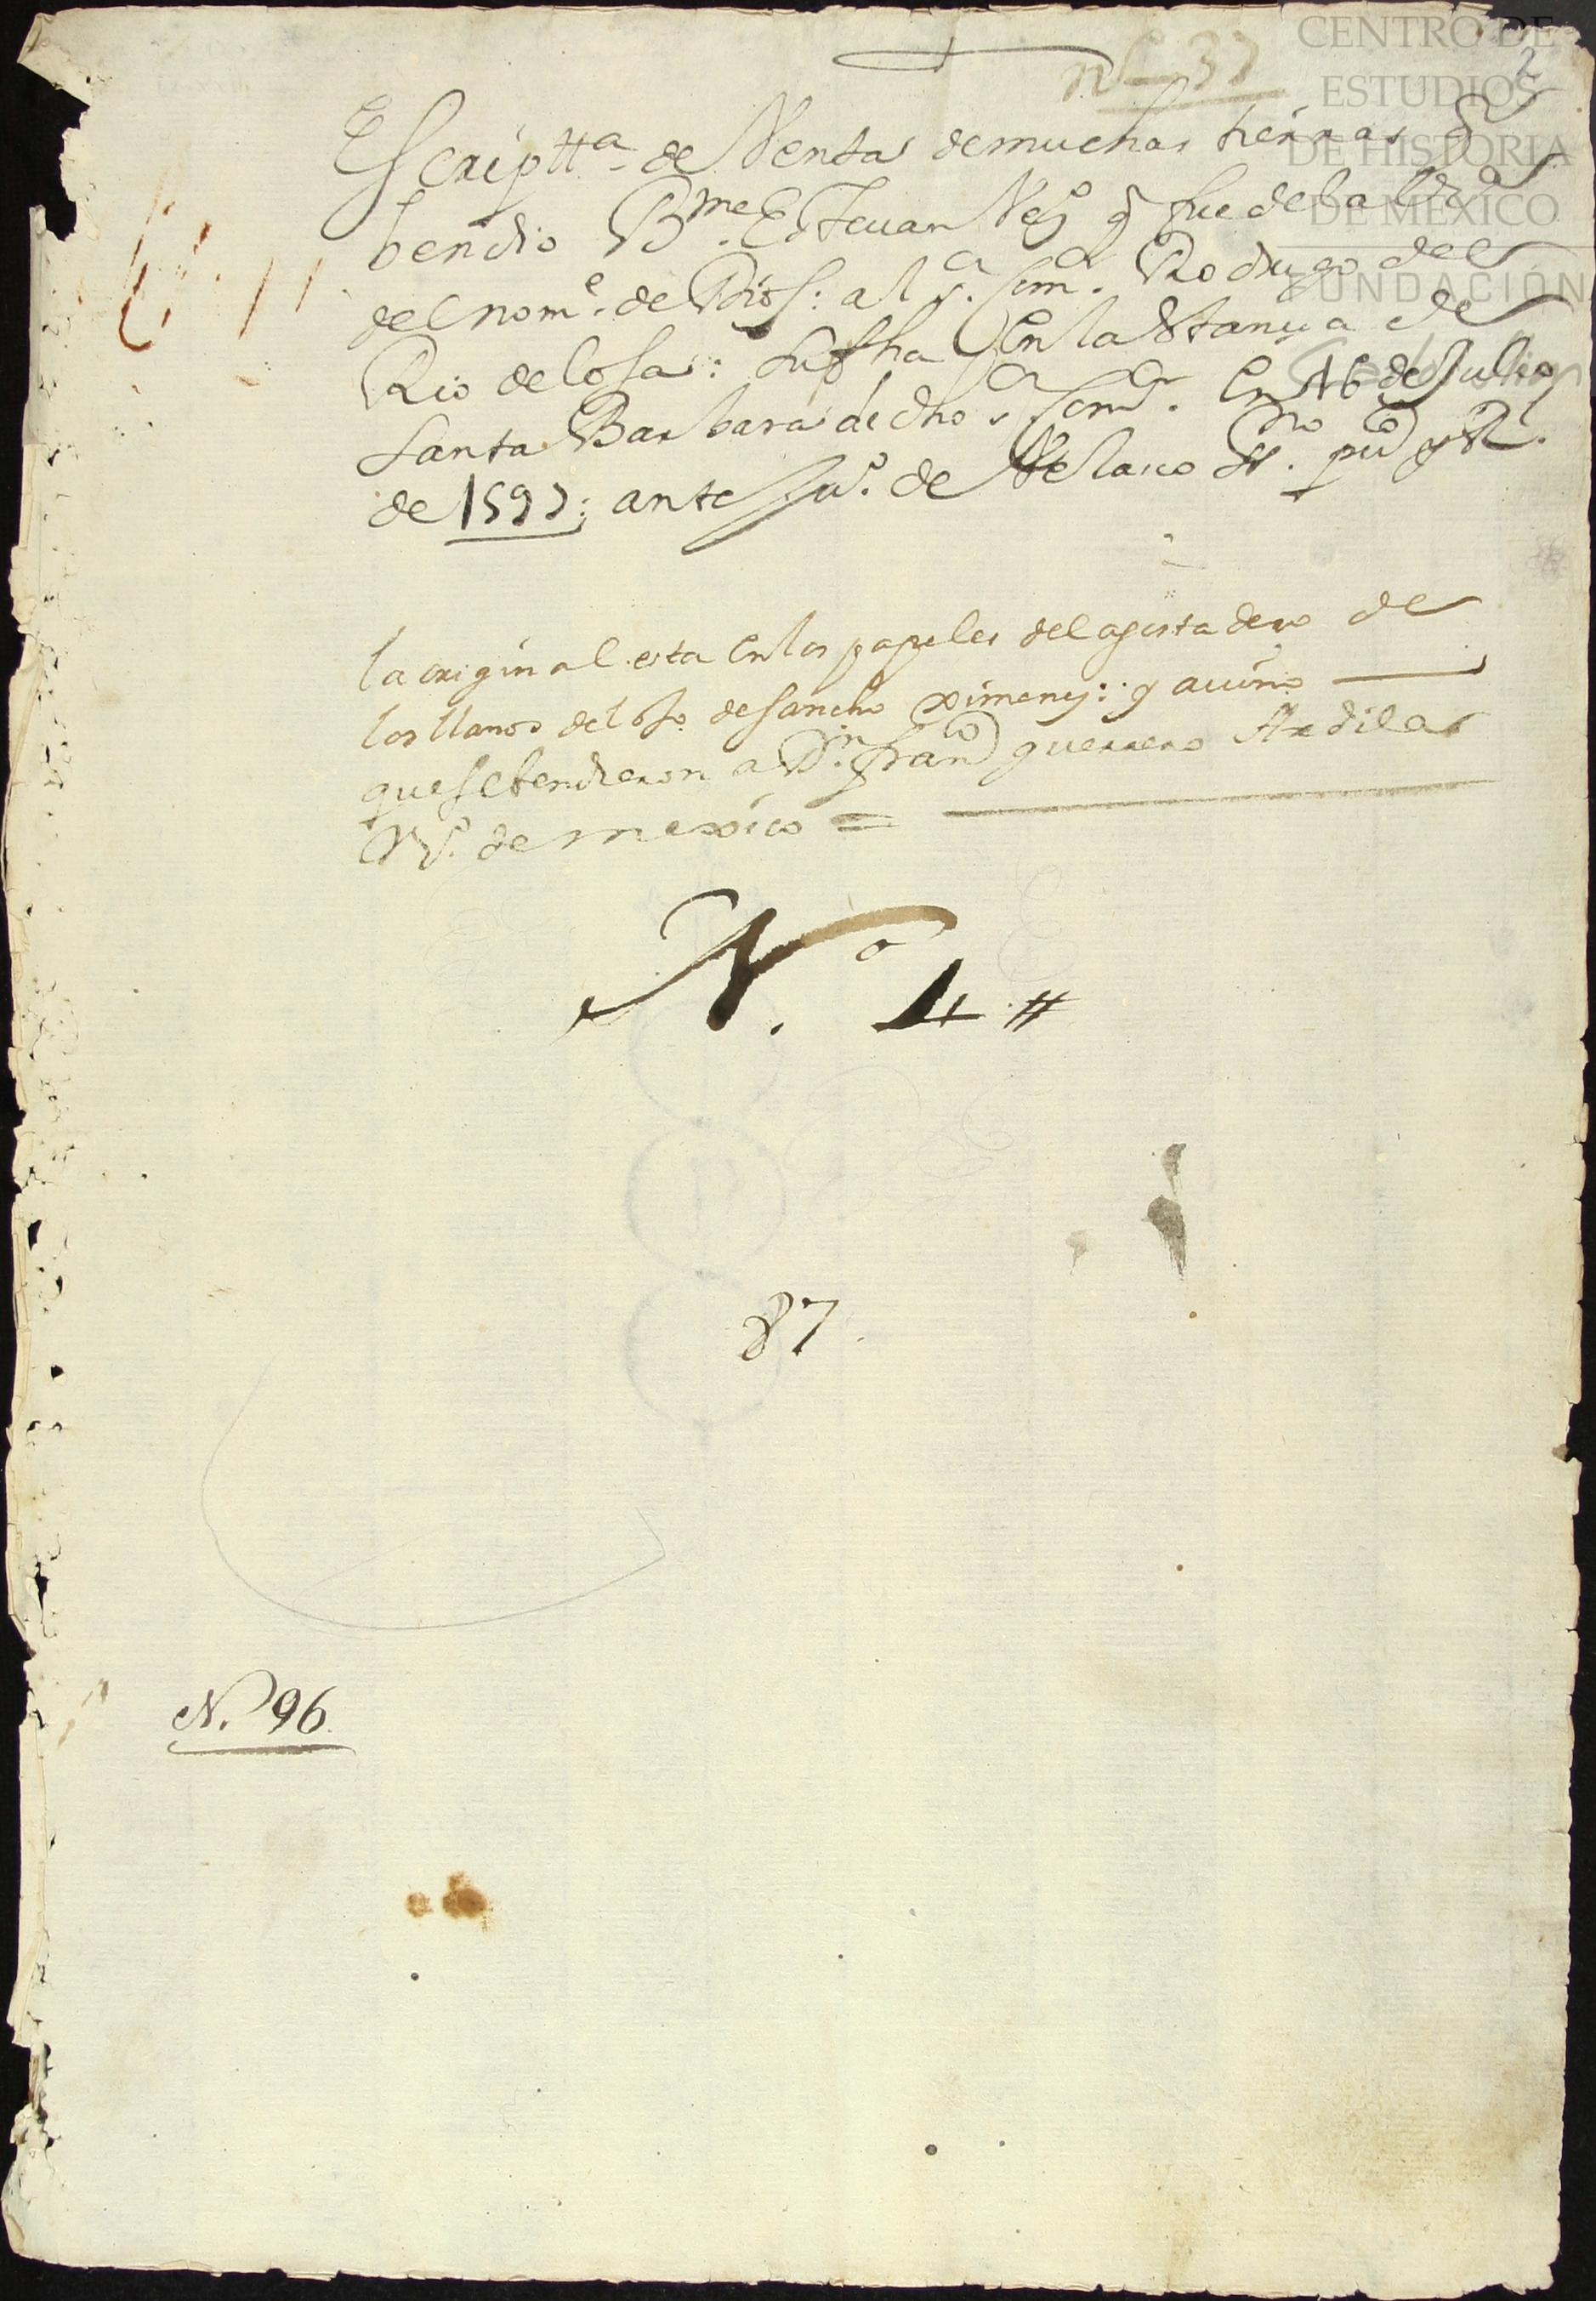 CENTRO DE
ESTUDIOS
DE HISTORIA
DE MÉXICO
FUNDACIÓN
2
nº 37
Escriptta de Venta de muchas tierras q
bendio Bme Esteuan Vº q fue de la
del nome. de Dios: al s. Rodrigo del
Rio de losa: su fha En la Stançia de
Santa Barbara de dho s. En 16 de Julio
de 1597; ante Juº. de Velasco pu co y Rl.
la original esta En los papeles del agostadero de
los llanos del oso de sancho ximenez: y auino
que se bendieron a Dn. franco guerrero Ardila
Vº. de mexico =
Nº. 4 #
87
N. 96